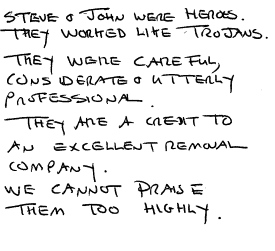 STEVE & JOHN WERE HEROES.
THEY WORKED LIKE TROJANS.
THEY WERE CAREFUL,
CONSIDERATE & UTTERLY
PROFESSIONAL.
THEY ARE A CREDIT TO
AN EXCELLENT REMOVAL
COMPANY.
WE CANNOT PRAISE
THEM TOO HIGHLY.